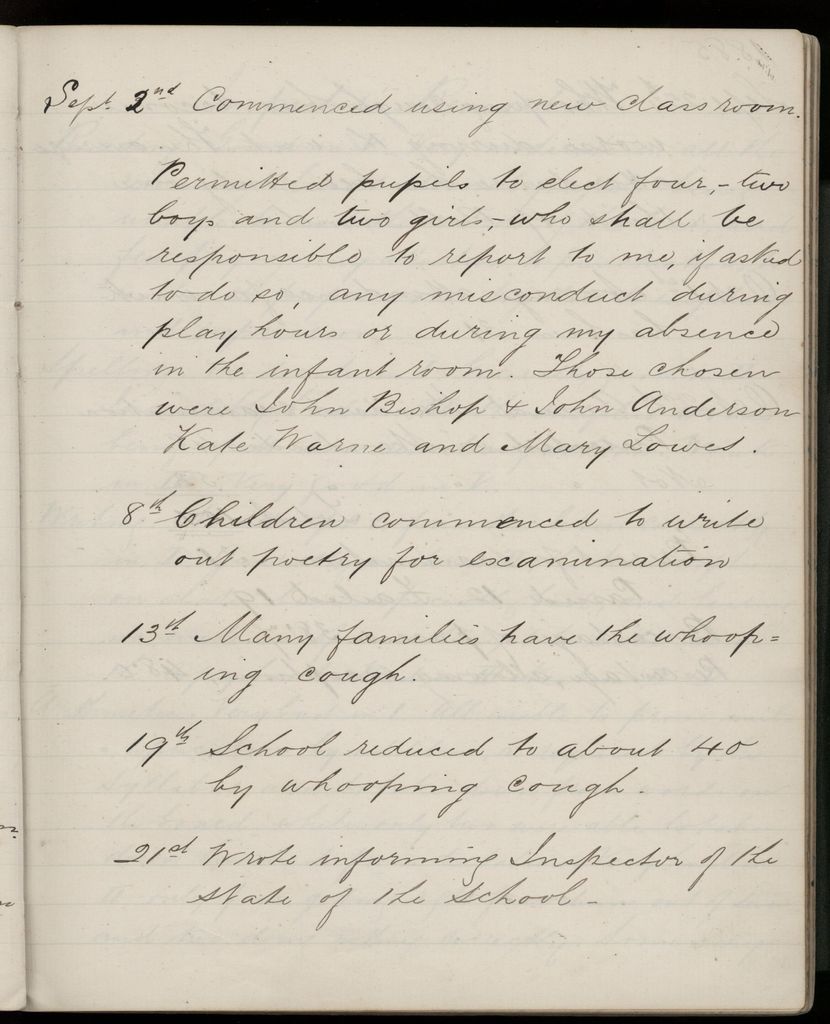 Sept. 2nd Commenced using new class room.
Permitted pupils to elect four,- two
boys and two girls,- who shall be
responsible to report to me, if asked
to do so, any misconduct during
play hours or during my absence
in the infant room. Those chosen
were John Bishop & John Anderson
Kate Warne and Mary Lowes.
8th Children commenced to write
out poetry for examination
13th Many families have the whoop=
ing cough.
19th School reduced to about 40
by whooping cough.
21st Wrote informing Inspector of the
state of the school -